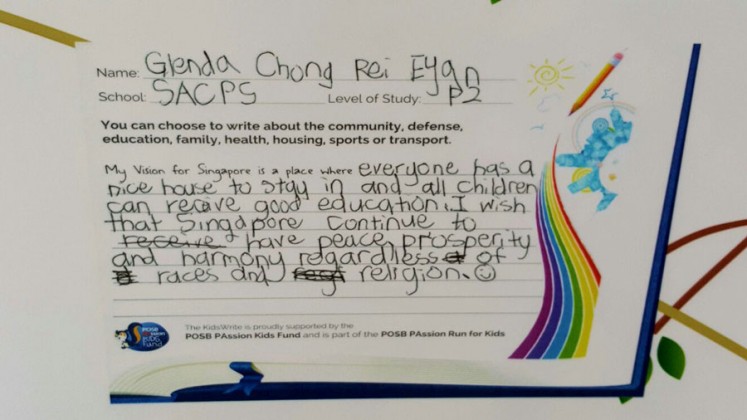 Name: Glenda Chong Rei Eyan
School: SACPS Level of Study: P2
You can choose to write about the community, defense,
education, family, health, housing, sports or transport.
My Vision for Singapore is a place where everyone has a
nice house to stay in and all children
can receive good education. I wish
that Singapore continue to
receive have peace, prosperity
and harmony regardless of
races and religion. ☺
POSB PAssion Kids Fund
The KidsWrite is proudly supported by the
POSB PAssion Kids Fund and is part of the POSB PAssion Run for Kids